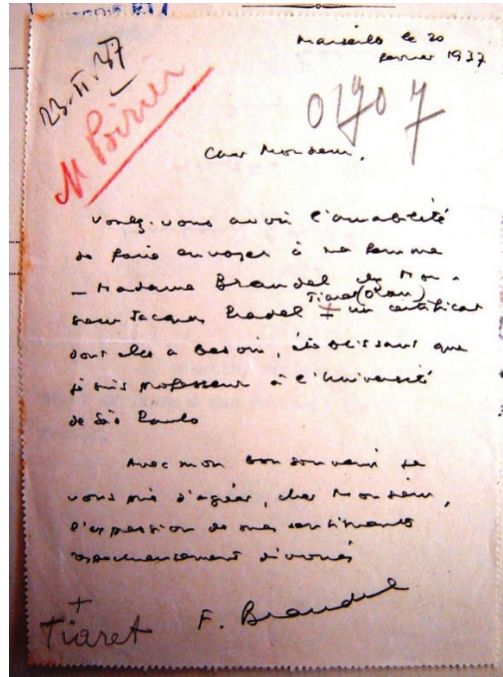 Marseille le 20
février 1937
23.II.37
M Poirier
01907
Cher Monsieur,
Voulez-vous avoir l'amabilité
de faire envoyer à ma femme
– Madame Braudel chez Mon-
sieur Jacques Pradel Tiaret (Oran) – un certificat
dont elle a besoin, établissant que
je suis professeur à l'Université
de São Paulo
Avec mon bon souvenir je
vous prie d'agréer, cher Monsieur,
l'expression de mes sentiments
respectueusement dévoués
F. Braudel
+
Tiaret